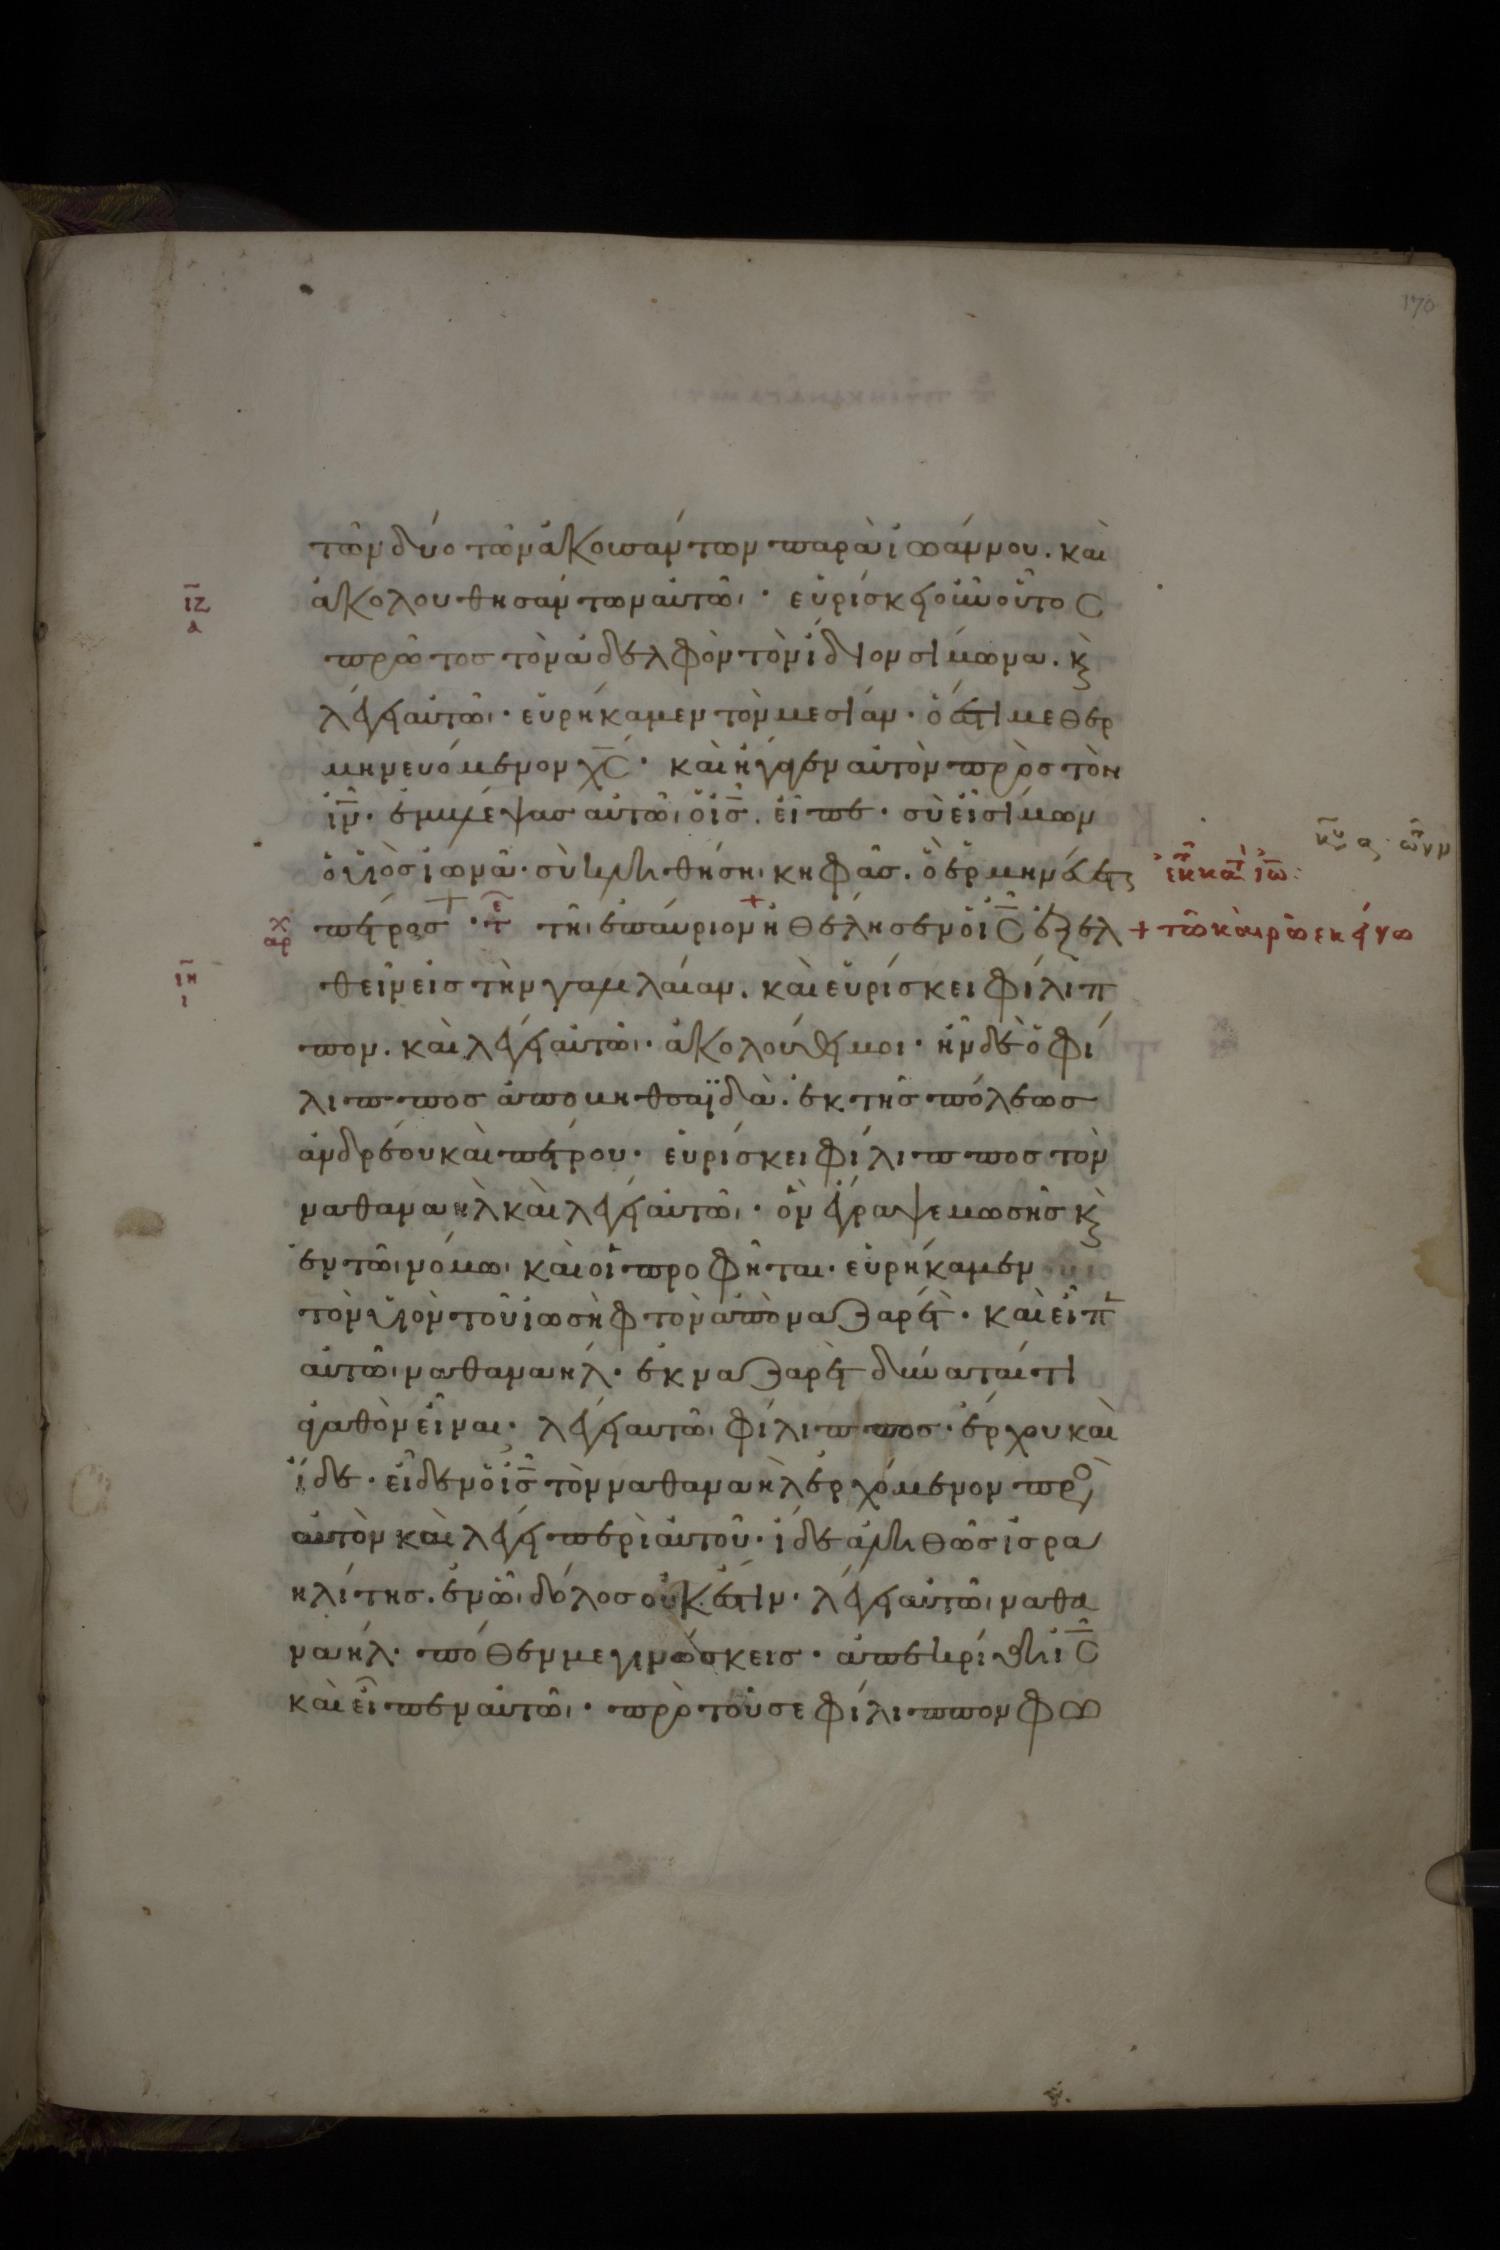 170
τῶν δύο τῶν ἀκουσάντων παρὰ ἰωάννου. καὶ
ἀκολουθησάντων αὐτῶ· εὑρίσκει οὖν οὗτος
πρῶτος τὸν ἀδελφὸν τὸν ἴδιον σίμωνα. κ̀
λέγει αὐτῶ· εὑρήκαμεν τὸν μεσίαν· ὅ ἐστι μεθερ
μηνευόμενον χ̅ς· καὶ ἤγαγεν αὐτὸν πρὸς τὸν
ι̅ν· ἐμβλέψας αὐτῶ ὁ ι̅ς. εἶπε· σὺ εἶ σίμων
ὁ υἱὸς ἰωνᾶ· σὺ κληθήση κηφᾶς. ὃ ἑρμηνεύεται
πέτρος· τε τῆ ἐπαύριον ἠθέλησεν ὁ ι̅ς ἐξελ
θεῖν εἰς τὴν γαλιλαίαν. καὶ εὑρίσκει φίλιπ
πον. καὶ λέγει αὐτῶ· ἀκολούθει μοι· ἦν δὲ ὁ φί
λιππος ἀπο βηθσαϊδὰ. ἐκ τῆς πόλεως
ἀνδρέου καὶ πέτρου· εὑρίσκει φίλιππος τὸν
ναθαναηλ καὶ λέγει αὐτῶ· ὃν ἔγραψε μωσῆς κ̀
ἐν τῶ νόμω καὶ οἱ προφῆται· εὑρήκαμεν
τὸν υἱὸν τοῦ ἰωσὴφ τὸν ἀπὸ ναζαρέτ· καὶ εἶπ
αὐτῶ ναθαναήλ· ἐκ ναζαρὲτ δύναταί τι
ἀγαθὸν εἶναι· λέγει αὐτῶ φίλιππος· ἔρχου καὶ
ἴδε· εἶδεν ὁ ι̅ς τὸν ναθαναὴλ ἐρχόμενον πρὸ
αὐτὸν καὶ λέγει περὶ αὐτοῦ· ἴδε ἀληθῶς ἰσρα
ηλίτης. ἐν ὧ δόλος οὐκ ἔστιν· λέγει αὐτῶ ναθα
ναήλ· πόθεν με γινώσκεις· ἀπεκρίθη ι̅ς
καὶ εἶπεν αὐτῶ· πρὸ τοῦ σε φίλιππον φω
ι̅ζ
α
χ
αρ
ι̅η
ι
ἐκ κατ ἰω:
+ τῶ καιρῶ εκείνω